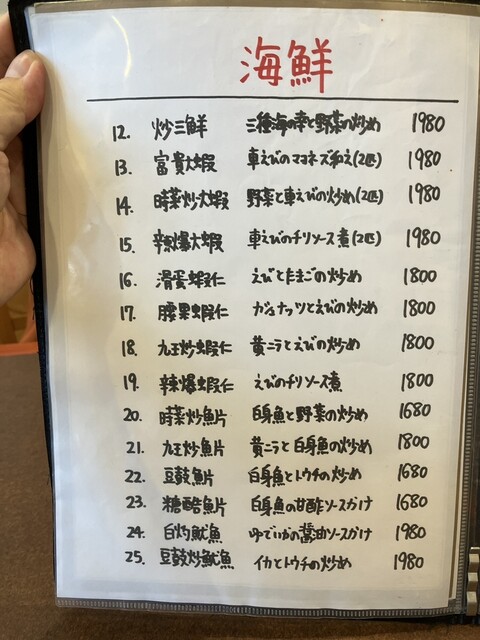 海鮮
12. 炒三鮮 三種海の幸と野菜の炒め 1980
13. 富貴大蝦 車えびのマヨネズ和え(2匹) 1980
14. 時菜炒大蝦 野菜と車えびの炒め(2匹) 1980
15. 辛辣爆大蝦 車えびのチリソース煮(2匹) 1980
16. 滑蛋蝦仁 えびとたまごの炒め 1800
17. 腰果蝦仁 カシュナッツとえびの炒め 1800
18. 九王炒蝦仁 黄ニラとえびの炒め 1800
19. 辣爆蝦仁 えびのチリソース煮 1800
20. 時菜炒魚片 白身魚と野菜の炒め 1680
21. 九王炒魚片 黄ニラと白身魚の炒め 1800
22. 豆鼓魚片 白身魚とトウチの炒め 1680
23. 糖酷魚片 白身魚の甘酢ソースかけ 1680
24. 白灼魷魚 ゆでいかの醤油ソースかけ 1980
25. 豆鼓炒魷魚 イカとトウチの炒め 1980